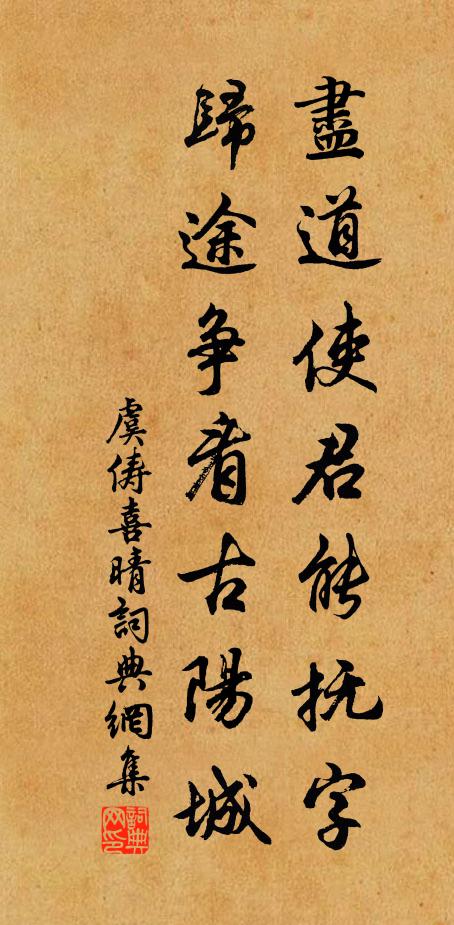 盡道使君能抚字
歸途争看古陽城
虞儔喜晴詞典網集
詞典网印